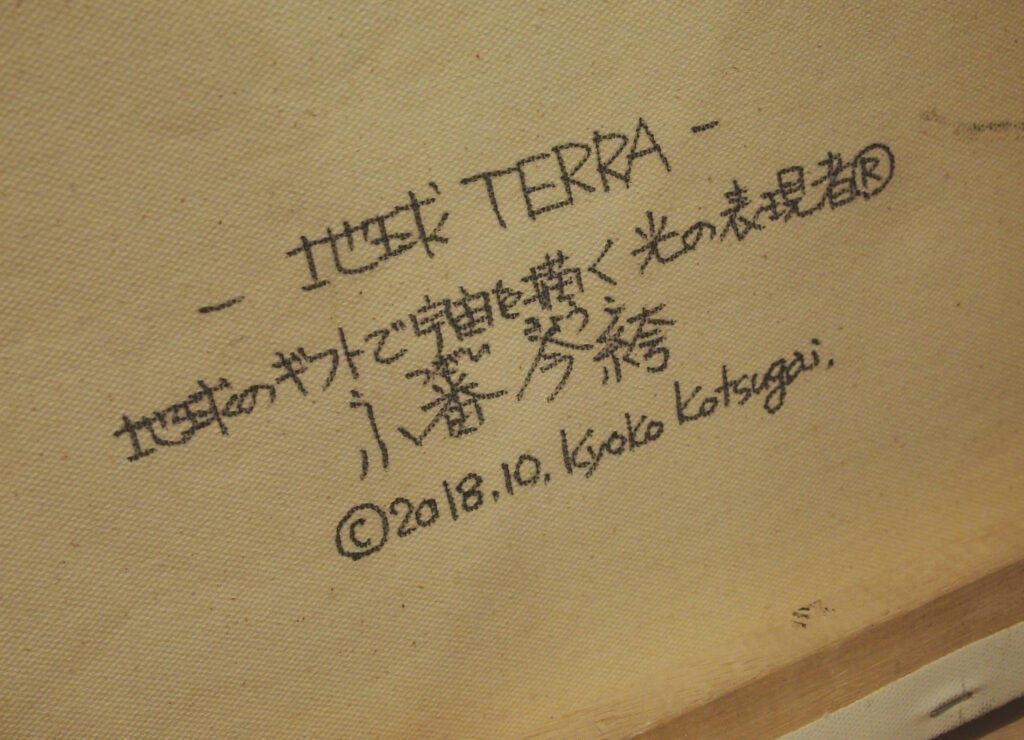 - 地球 TERRA -
地球のギフトで宇宙を描く 光の表現者®
小番
©2018.10. Kyoko Kotsugai.